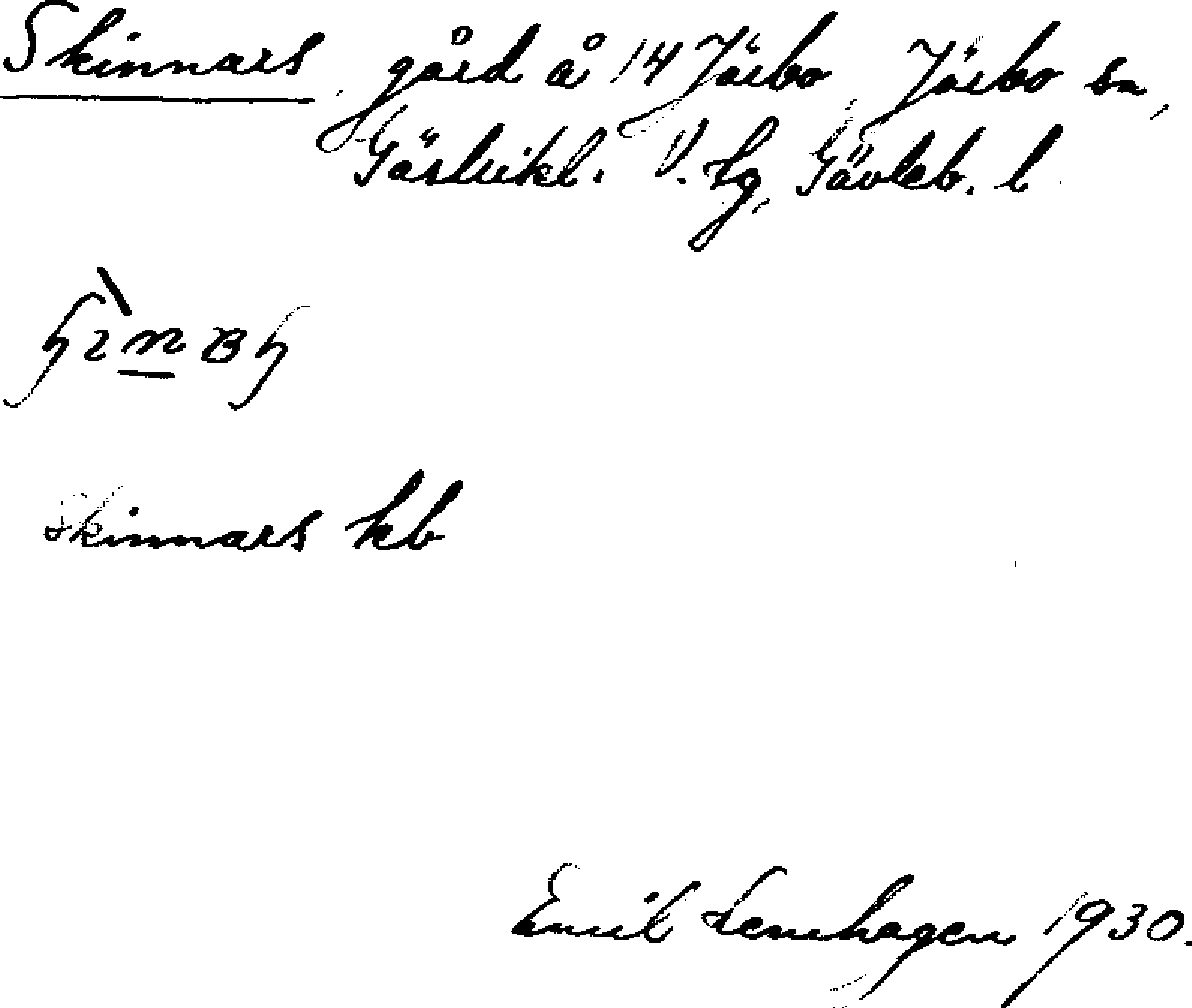 Skinnars, gård å 14 Järbo, Järbo sn,
Gästrikl. V. tg, Gävleb. l.
Skinnars kb
Emil Lenhagen 1930.